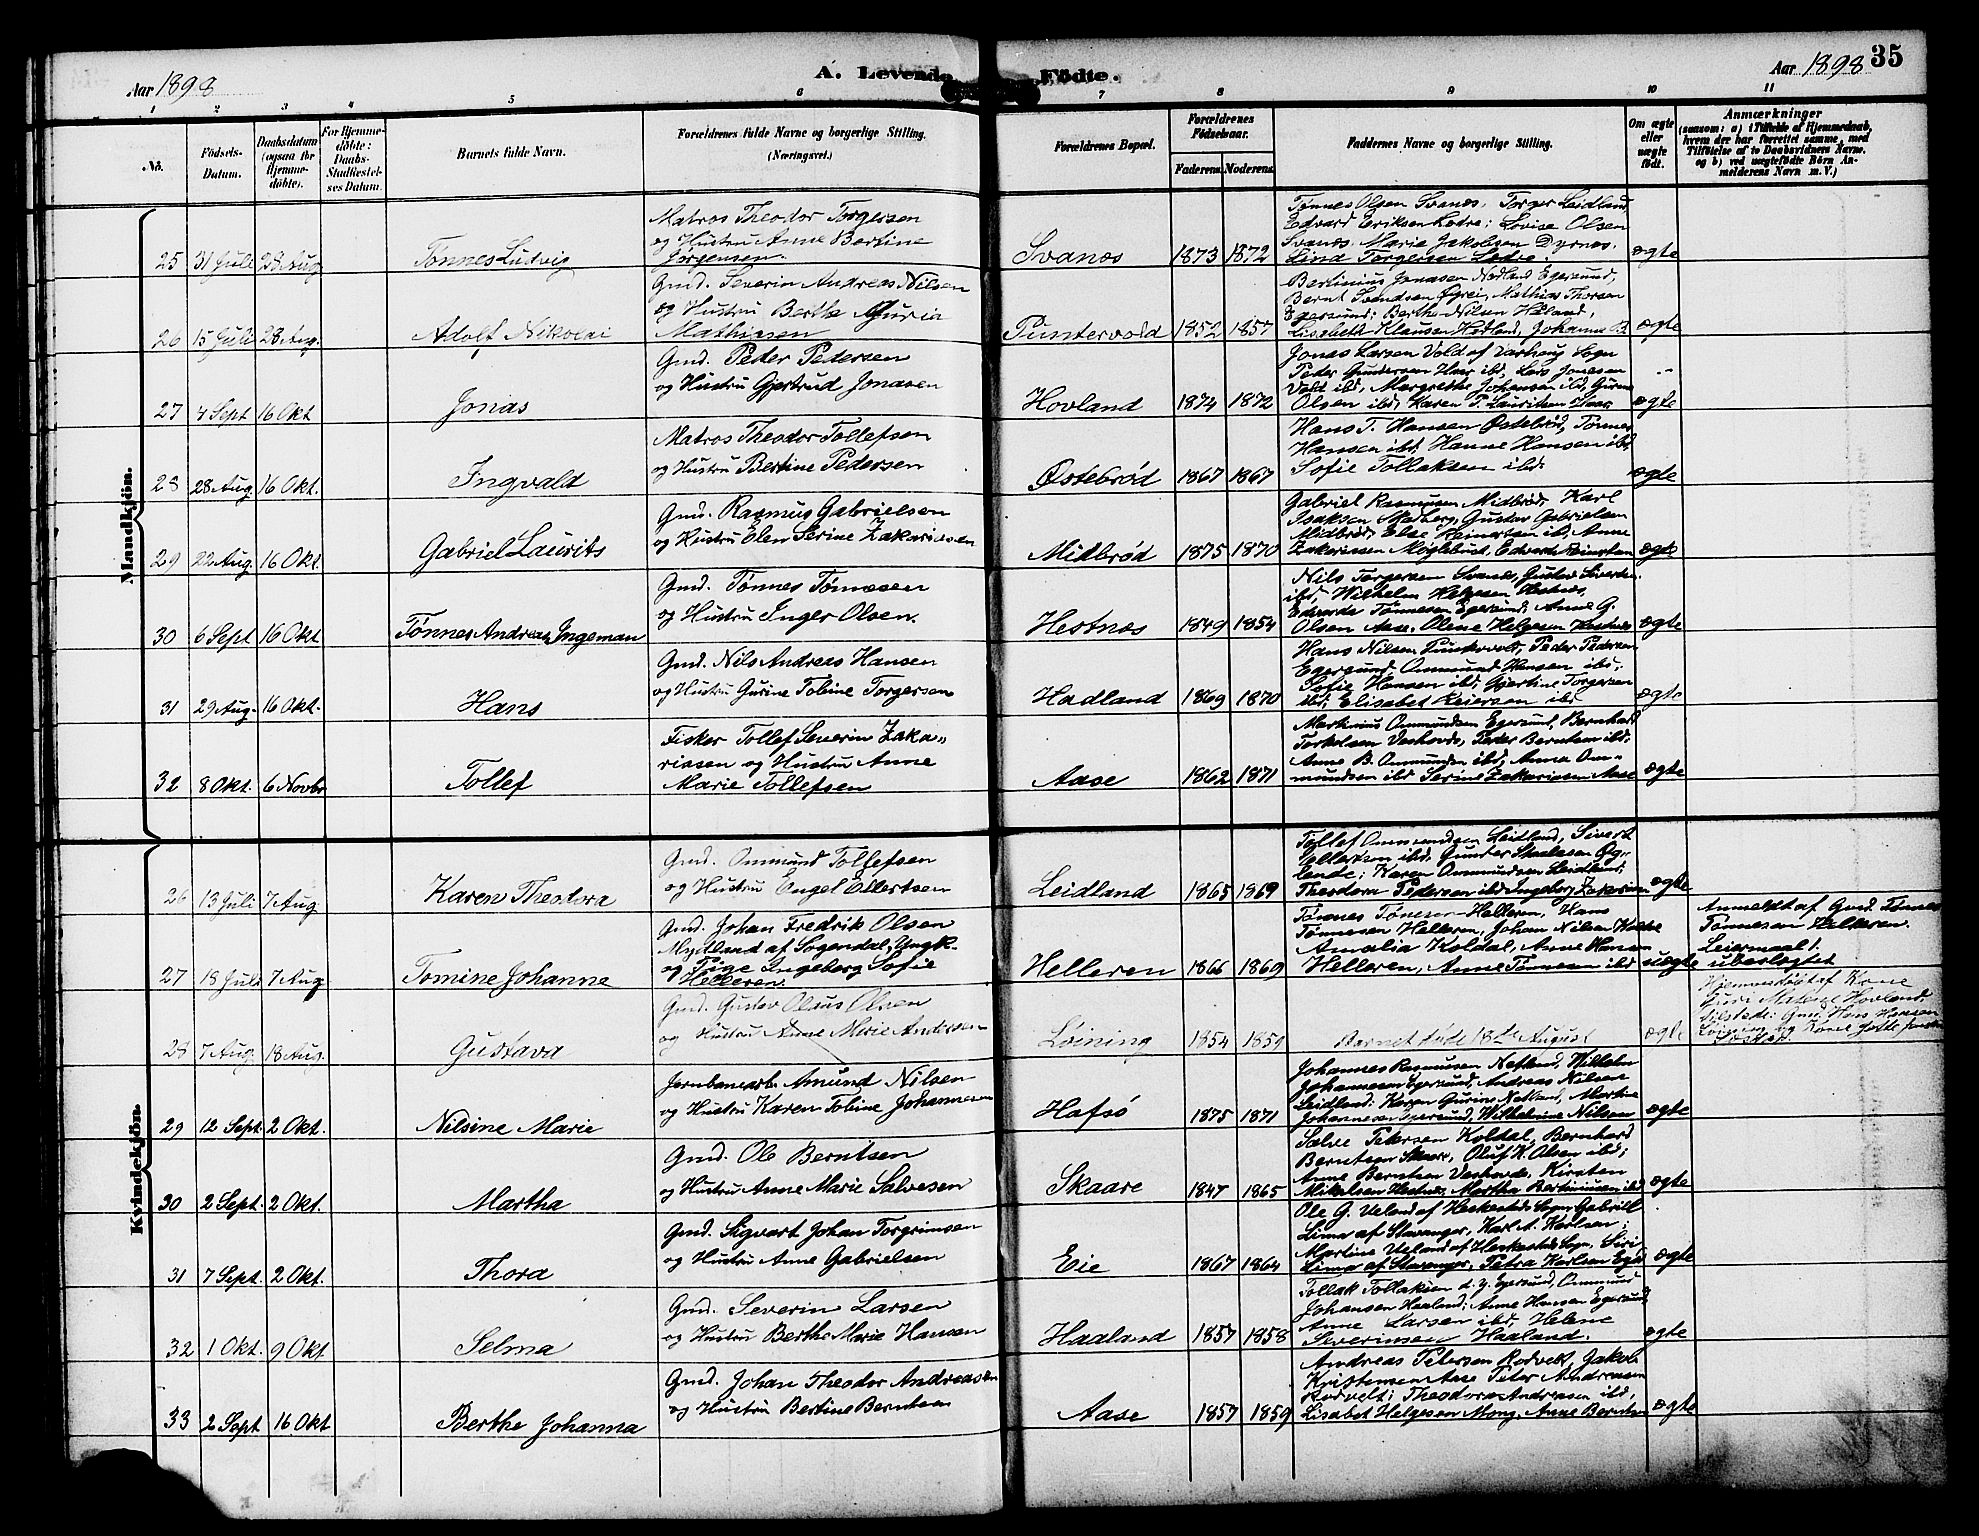 Aar 1898
A. Levende Födte.
Aar 1898
35
1 2 3 4 5 6 7 8 9 10 11
No.
Födsels-Datum.
Daabsdatum (ogsaa for Hjemme-döbte).
For Hjemme-döbte: Daabs-Stadfæstel-ses Datum.
Barnets fulde Navn.
Forældrenes fulde Navne og borgerlige Stilling.
(Næringsvei.)
Forældrenes Bopæl.
Forældrenes Födselsaar.
Faderens. Moderens.
Faddernes Navne og borgerlige Stilling.
Om ægte eller uægte födt.
Anmærkninger
(saasom: a) i Tilfælde af Hjemmedaab,
hvem der har forrettet samme, med
Tilföielse af to Daabsvidners Navne,
og b) ved uægtefödte Börn An-
melderens Navn m.V.)
Mandkjön.
25 31 Juli 28 Aug Tønnes Ludvig
Matros Theodor Torgersen
og Hustru Anne Bertine
Jørgensen.
Svanæs 1873 1872
Tønnes Olsen Svanæs, Torger Leidland,
Edvard Eriksen Ledre; Lovise Olsen
Svanæs, Marie Jakobsen Dyrnes,
Lina Torgersen Ledre.
ægte
26 15 Juli 28 Aug. Adolf Nikolai
Gmd. Severin Andreas Nilsen
og Hustru Berthe Guria
Mathiasen
Puntervold 1852 1857
Bertinius Jonassen Nodland Egersund,
Bernt Svendsen Øgrei, Mathias Thorsen
Egersund; Berthe Nilsen Haaland,
Lisabeth Klausen Hodland, Johanne B.
ægte
27 4 Sept 16 Okt Jonas
Gmd. Peder Pedersen
og Hustru Gjertrud Jonasen
Hovland 1874 1872
Jonas Larsen Vold af Varhaug Sogn
Peder Gundersen ibd, Lars Jonesen
Vold ibd, Margrethe Johansen ibd, Gurine
Olsen ibd, Karen P. Lauritsen
ægte
28 28 Aug. 16 Okt. Ingvald
Matros Theodor Tollefsen
og Hustru Bertine Pedersen
Østebrød 1867 1867
Hans T. Hansen Østebrød, Tønnes
Hansen ibd, Hanne Hansen ibd,
Sofie Tollaksen ibd.
ægte
29 22 Aug. 16 Okt. Gabriel Laurits
Gmd. Rasmus Gabrielsen
og Hustru Elen Serine Zakariesen
Midbrød 1875 1870
Gabriel Rasmusen Midbrød, Karl
Isaksen Maaberg, Gustav Gabrielsen
Midbrød, Else Reinertsen ibd, Anne
Zakariasen Møglebust, Edvarda Reinertsen
ægte
30 6 Sept 16 Okt Tønnes Andreas Ingeman
Gmd. Tønnes Tønnesen
og Hustru Inger Olsen.
Hestnæs 1849 1854
Nils Torgersen Svanæs, Gustav Sivertsen
ibd, Wilhelm Helgesen Hestnæs,
Edvarda Tønnesen Egersund, Anne G.
Olsen Aase, Olene Helgesen Hestnæs
ægte
31 29 Aug. 16 Okt. Hans
Gmd. Nils Andreas Hansen
og Hustru Gurine Tobine Torgersen
Hadland 1869 1870
Hans Nilsen Puntervolt, Peder Pedersen
Egersund, Ommund Hansen ibd,
Sofie Hansen ibd, Gjertine Torgersen
ibd, Elisabet Reiersen ibd
ægte
32 8 Okt. 6 Novbr Tollef
Fisker Tollef Severin Zaka„
riasen og Hustru Anne
Marie Tollefsen
Aase 1862 1871
Martinius Ommundsen Egersund, Bernhard
Torkelsen Veshovde, Peder Berntsen ibd,
Anne B. Ommundsen ibd, Anna Om-
mundsen ibd Serine Zakariasen Aase
ægte
Kvindekjön.
26 13 Juli 7 Aug Karen Theodora
Gmd. Ommund Tollefsen
og Hustru Engel Ellertsen
Leidland 1865 1869
Tollef Ommundsen Leidland, Sivert
Tollefsen ibd, Gunder Staalesen Øg„
lende; Karen Ommundsen Leidland,
Theodora Pedersen ibd Ingeborg Zakarias
ægte
27 18 Juli 7 Aug Tomine Johanne
Gmd. Johan Fredrik Olsen
Mydland af Sogendal, Ungk.
og Pige Ingeborg Sofie
Helleren.
Helleren 1866 1869
Tønnes Tønesen Helleren, Hans
Tønnesen Helleren, Johan Nilsen
Amalia Koldal, Anne Hansen
Helleren, Anne Tønnesen ibd
uægte
Anmeldt af Gmd. Tønnes
Tønnesen Helleren.
Leiermaal 1.
ubeslægtet
28 7 Aug. 18 Aug. Gustava
Gmd. Gustav Olaus Olsen
og Hustru Anne Marie Andersen
Løining 1854 1859
Barnet døde 18de August
ægte
Hjemmedøbt af Kone
Guri Malene Hovland.
Tilstede: Gmd Hans Hansen
Løining og Kone
29 12 Sept 2 Okt. Nilsine Marie
Jernbanearb. Amund Nilsen
og Hustru Karen Tobine Johannesen
Hafsö 1875 1871
Johannes Rasmusen Netland, Wilhelm
Johannesen Egersund, Andreas Nilsen
Leidland; Karen Gurine Netland, Martine
Johannesen Egersund, Wilhelmine Nilsen
ægte
30 2 Sept. 2 Okt. Martha
Gmd. Ole Berntsen
og Hustru Anne Marie Salvesen
Skaare 1847 1865
Salve Petersen Koldal, Bernhard
Berntsen Skaare, Oluf K. Olsen ibd;
Anne Berntsen Veshovde, Kirsten
Mikalsen Hestnæs, Martha Bertiniusen ibd
ægte
31 7 Sept. 2 Okt. Thora
Gmd. Sigvart Johan Torgrimsen
og Hustru Anne Gabrielsen
Eie 1867 1864
Ole G. Ueland af Heskestads Sogn, Gabriel
Lima af Stavanger, Karl A. Karlsen;
Martine Ueland af Heskestads Sogn, Siri
Lima af Stavanger, Petra Karlsen
ægte
32 1 Okt. 9 Okt Selma
Gmd. Severin Larsen
og Hustru Berthe Marie Hansen
Haaland 1857 1858
Tollak Tollaksen d. y. Egersund, Ommund
Johansen Haaland; Anne Hansen Egersund,
Anne Larsen ibd, Helene
Severinsen Haaland.
ægte
33 2 Sept 16 Okt Berthe Johanna
Gmd. Johan Theodor Andreasen
og Hustru Bertine Berntsen
Aase 1857 1859
Andreas Petersen Rodvelt, Jakob
Kristensen Aase Peter Andreasen
Rodvelt; Theodora Andreasen ibd,
Lisabet Helgesen Mong, Anne Berntsen
ægte